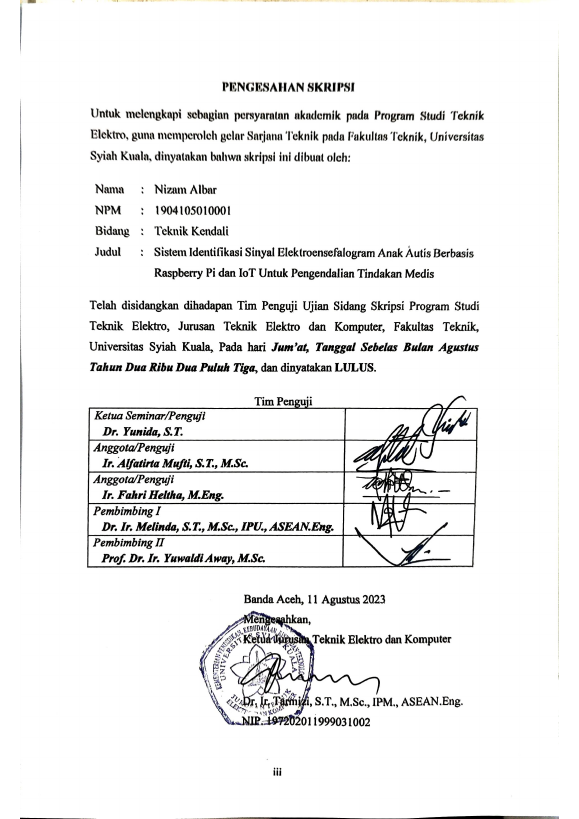 PENGESAHAN SKRIPSI
Untuk melengkapi sebagian persyaratan akademik pada Program Studi Teknik
Elektro, guna memperoleh gelar Sarjana Teknik pada Fakultas Teknik, Universitas
Syiah Kuala, dinyatakan bahwa skripsi ini dibuat oleh:
Nama : Nizam Albar
NPM : 1904105010001
Bidang : Teknik Kendali
Judul : Sistem Identifikasi Sinyal Elektroensefalogram Anak Autis Berbasis
Raspberry Pi dan IoT Untuk Pengendalian Tindakan Medis
Telah disidangkan dihadapan Tim Penguji Ujian Sidang Skripsi Program Studi
Teknik Elektro, Jurusan Teknik Elektro dan Komputer, Fakultas Teknik,
Universitas Syiah Kuala, Pada hari Jum'at, Tanggal Sebelas Bulan Agustus
Tahun Dua Ribu Dua Puluh Tiga, dan dinyatakan LULUS.
Tim Penguji
Ketua Seminar/Penguji
Dr. Yunida, S.T.
Anggota/Penguji
Ir. Alfatirta Mufti, S.T., M.Sc.
Anggota/Penguji
Ir. Fahri Heltha, M.Eng.
Pembimbing I
Dr. Ir. Melinda, S.T., M.Sc., IPU., ASEAN.Eng.
Pembimbing II
Prof. Dr. Ir. Yuwaldi Away, M.Sc.
Banda Aceh, 11 Agustus 2023
Mengesahkan,
Ketua Jurusan Teknik Elektro dan Komputer
Dr. Ir. Tarmizi, S.T., M.Sc., IPM., ASEAN.Eng.
NIP. 197202011999031002
iii